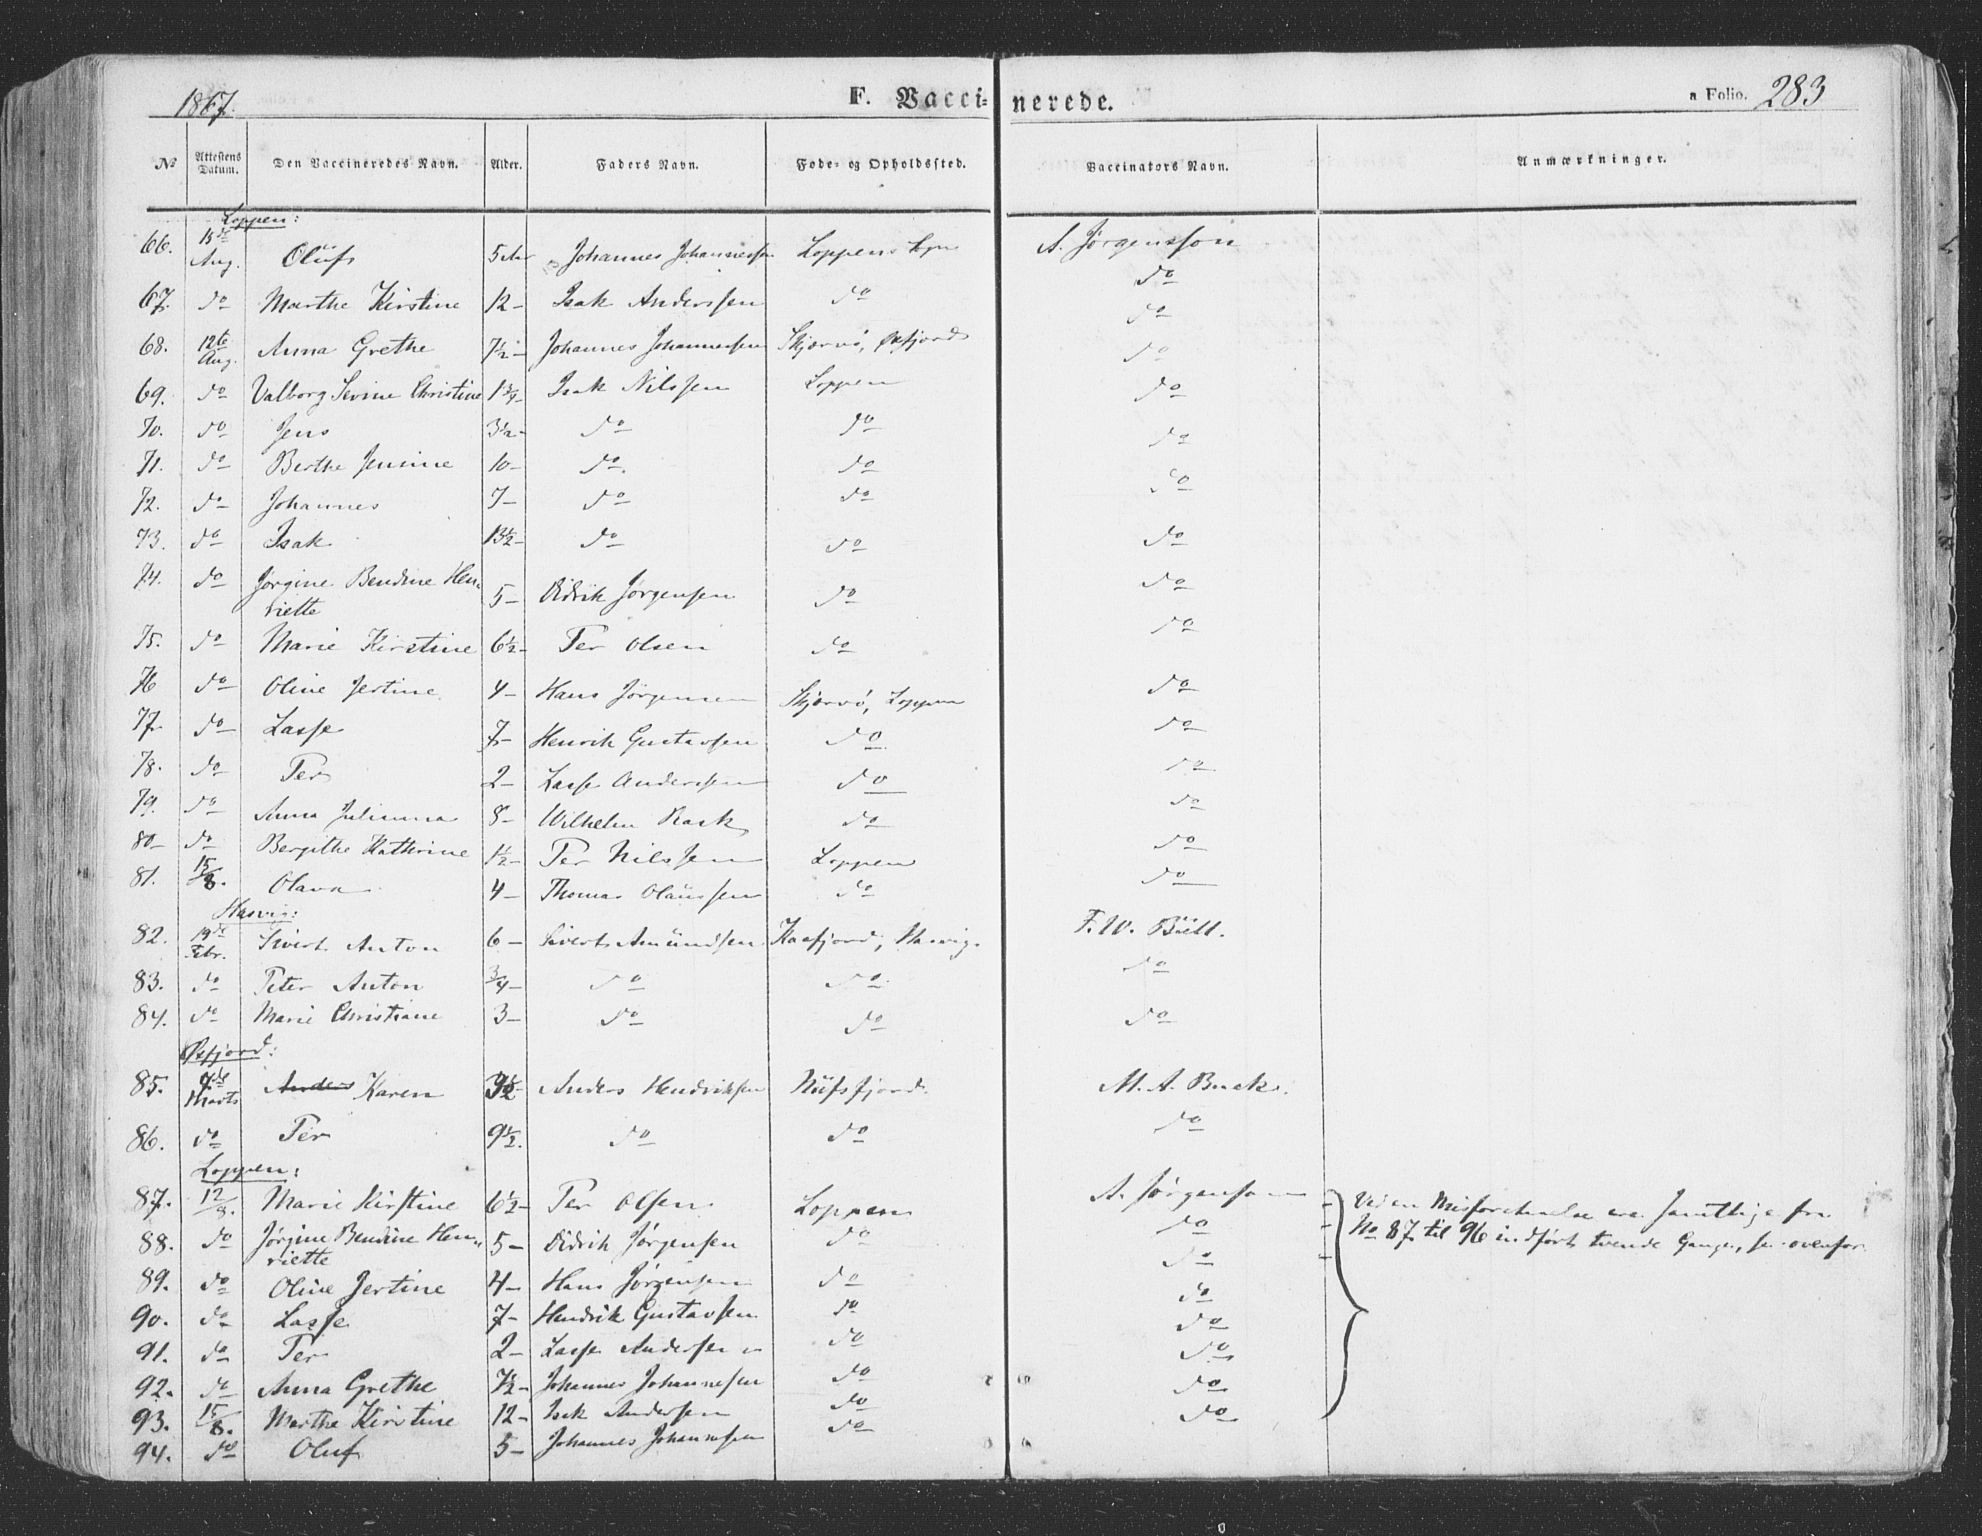 1867.
F. Vacci=
nerede.
a Folio. 283
No
Attestens Datum.
Den Vaccineredes Navn.
Alder.
Faders Navn.
Føde- og Opholdssted.
Vaccinators Navn.
Anmærkninger.
Loppen:
66. 15de Aug. Oluf 5 Aar Johannes Johannessen Loppens A. Jørgensson
67. do Marthe Kirstine 12 - Isak Anderssen do do
do
68. 12te Aug. Anna Grethe 7½ - Johannes Johannessen Skjærvø, Øxfjord do
69. do Valborg Sevrine Christine 1¾ - Isak Nilssen Loppen do
70. do Jens 3½ - do do do
71. do Berthe Jensine 10 - do. do do
72. do Johannes 7 - do do
73. do Isak 13½ - do do do
74. do Jørgine Bendine Hen-
riette 5 - Didrik Jørgensen do do
75. do Marie Kirstine 6½ - Per Olsen do do
76 do Oline Jertine 4 - Hans Jørgensen Skjærvø, Loppen do
77. do Lasse 7 - Henrik Gustavsen do do
78. do Per 2 - Lasse Anderssen do do
79. do Anna Julianna 8 - Wilhelm Rask do do
80 - do Bergithe Kathrine 1½ - Per Nilssen Loppen do
81. 15/8. Olava 4 - Thomas Olaussen do do
Hasvig:
82. 19de Febr. Sivert Anton 6 - Sivert Amundsen Kaafjord, Hasvig. F. W. Büll.
83. do Peter Anton ¾ - do do do
84. do Marie Christiane 3 - do do do
Øxfjord:
85. Marts Anders Karen Anders Hendriksen Nüfsfjord. M. A. Buck.
86. do Per 9½. do do do
Loppen:
87. 12/8. Marie Kirstine 6½ - Per Olsen Loppen A. Jørgensson Ved en Misforstaaelse ere samtlige fra
88. do Jørgine Bendine Hen-
riette 5 - Didrik Jørgensen do do No 87 til 96 indført tvende Gange, se ovenfor.
do
89. do Oline Jertine 4 - Hans Jørgensen do do
90. do Lasse 7 - Hendrik Gustavsen do do
91. do Per 2 - Lasse Andersen do do
92. do Anna Grethe 7½ - Johannes Johannesen do do
93. 15/8. Marthe Kirstine 12 - Isak Andersen do do
94. do Oluf 5 - Johannes Johannesen do